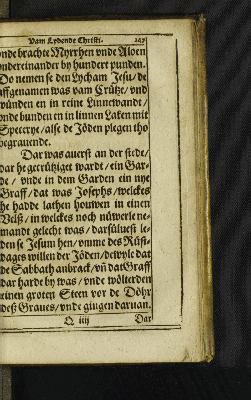 Vam Lydende Christi. 247
vnde brachte Myrrhen vnde Aloen
vndereinander by hundert punden.
Do nemen se den Lycham Jesu / de
affgenamen was vam Crütze / vnd
wünden en in reine Linnewandt /
vnde bunden en in linnen Laken mit
Specerye / alse de Jöden plegen tho
begrauende.
Dar was auerst an der stede /
dar he gecrütziget wardt / ein Gar-
de / vnde in dem Garden ein nye
Graff / dat was Josephs / welckes
he hadde lathen houwen in einen
Velß / in welckes noch nüwerle ne-
mandt gelecht was / darsüluest le-
den se Jesum hen / vmme des Rüst-
dages willen der Jöden / dewyle dat
de Sabbath anbrack / vñ dat Graff
dar harde by was / vnde wölterden
einen groten Steen vor de Döhr
deß Graues / vnde gingen daruan.
Q iiij Dar